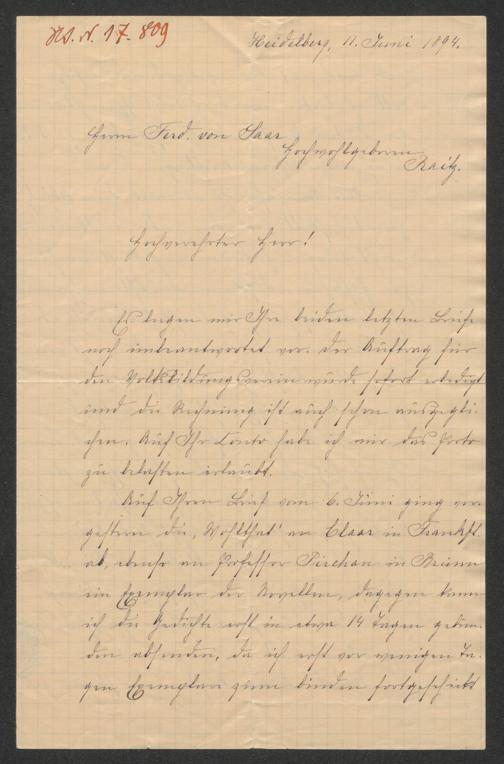 HS. N. 17.809
Heidelberg, 11. Juni 1894.
Herrn Ferd. von Saar
Hochwohlgeboren
Raitz.
Hochverehrter Herr!
Es liegen mir Ihre beiden letzten Briefe
noch unbeantwortet vor. Der Auftrag für
den Volksbildungsverein wurde sofort erledigt
und die Rechnung ist auch schon ausgegli-
chen. Auf Ihr Conto habe ich mir das Porto
zu belasten erlaubt.
Auf Ihren Brief vom 6. Juni ging vor-
gestern die „Wohlthat“ an Claar in Frankft.
ab, ebenso an Professor Pirchan in Brünn
ein Exemplar der Novellen, dagegen kann
ich die Gedichte erst in etwa 14 Tagen gebun-
den absenden, da ich erst vor wenigen Ta-
gen Exemplare zum binden fortgeschickt